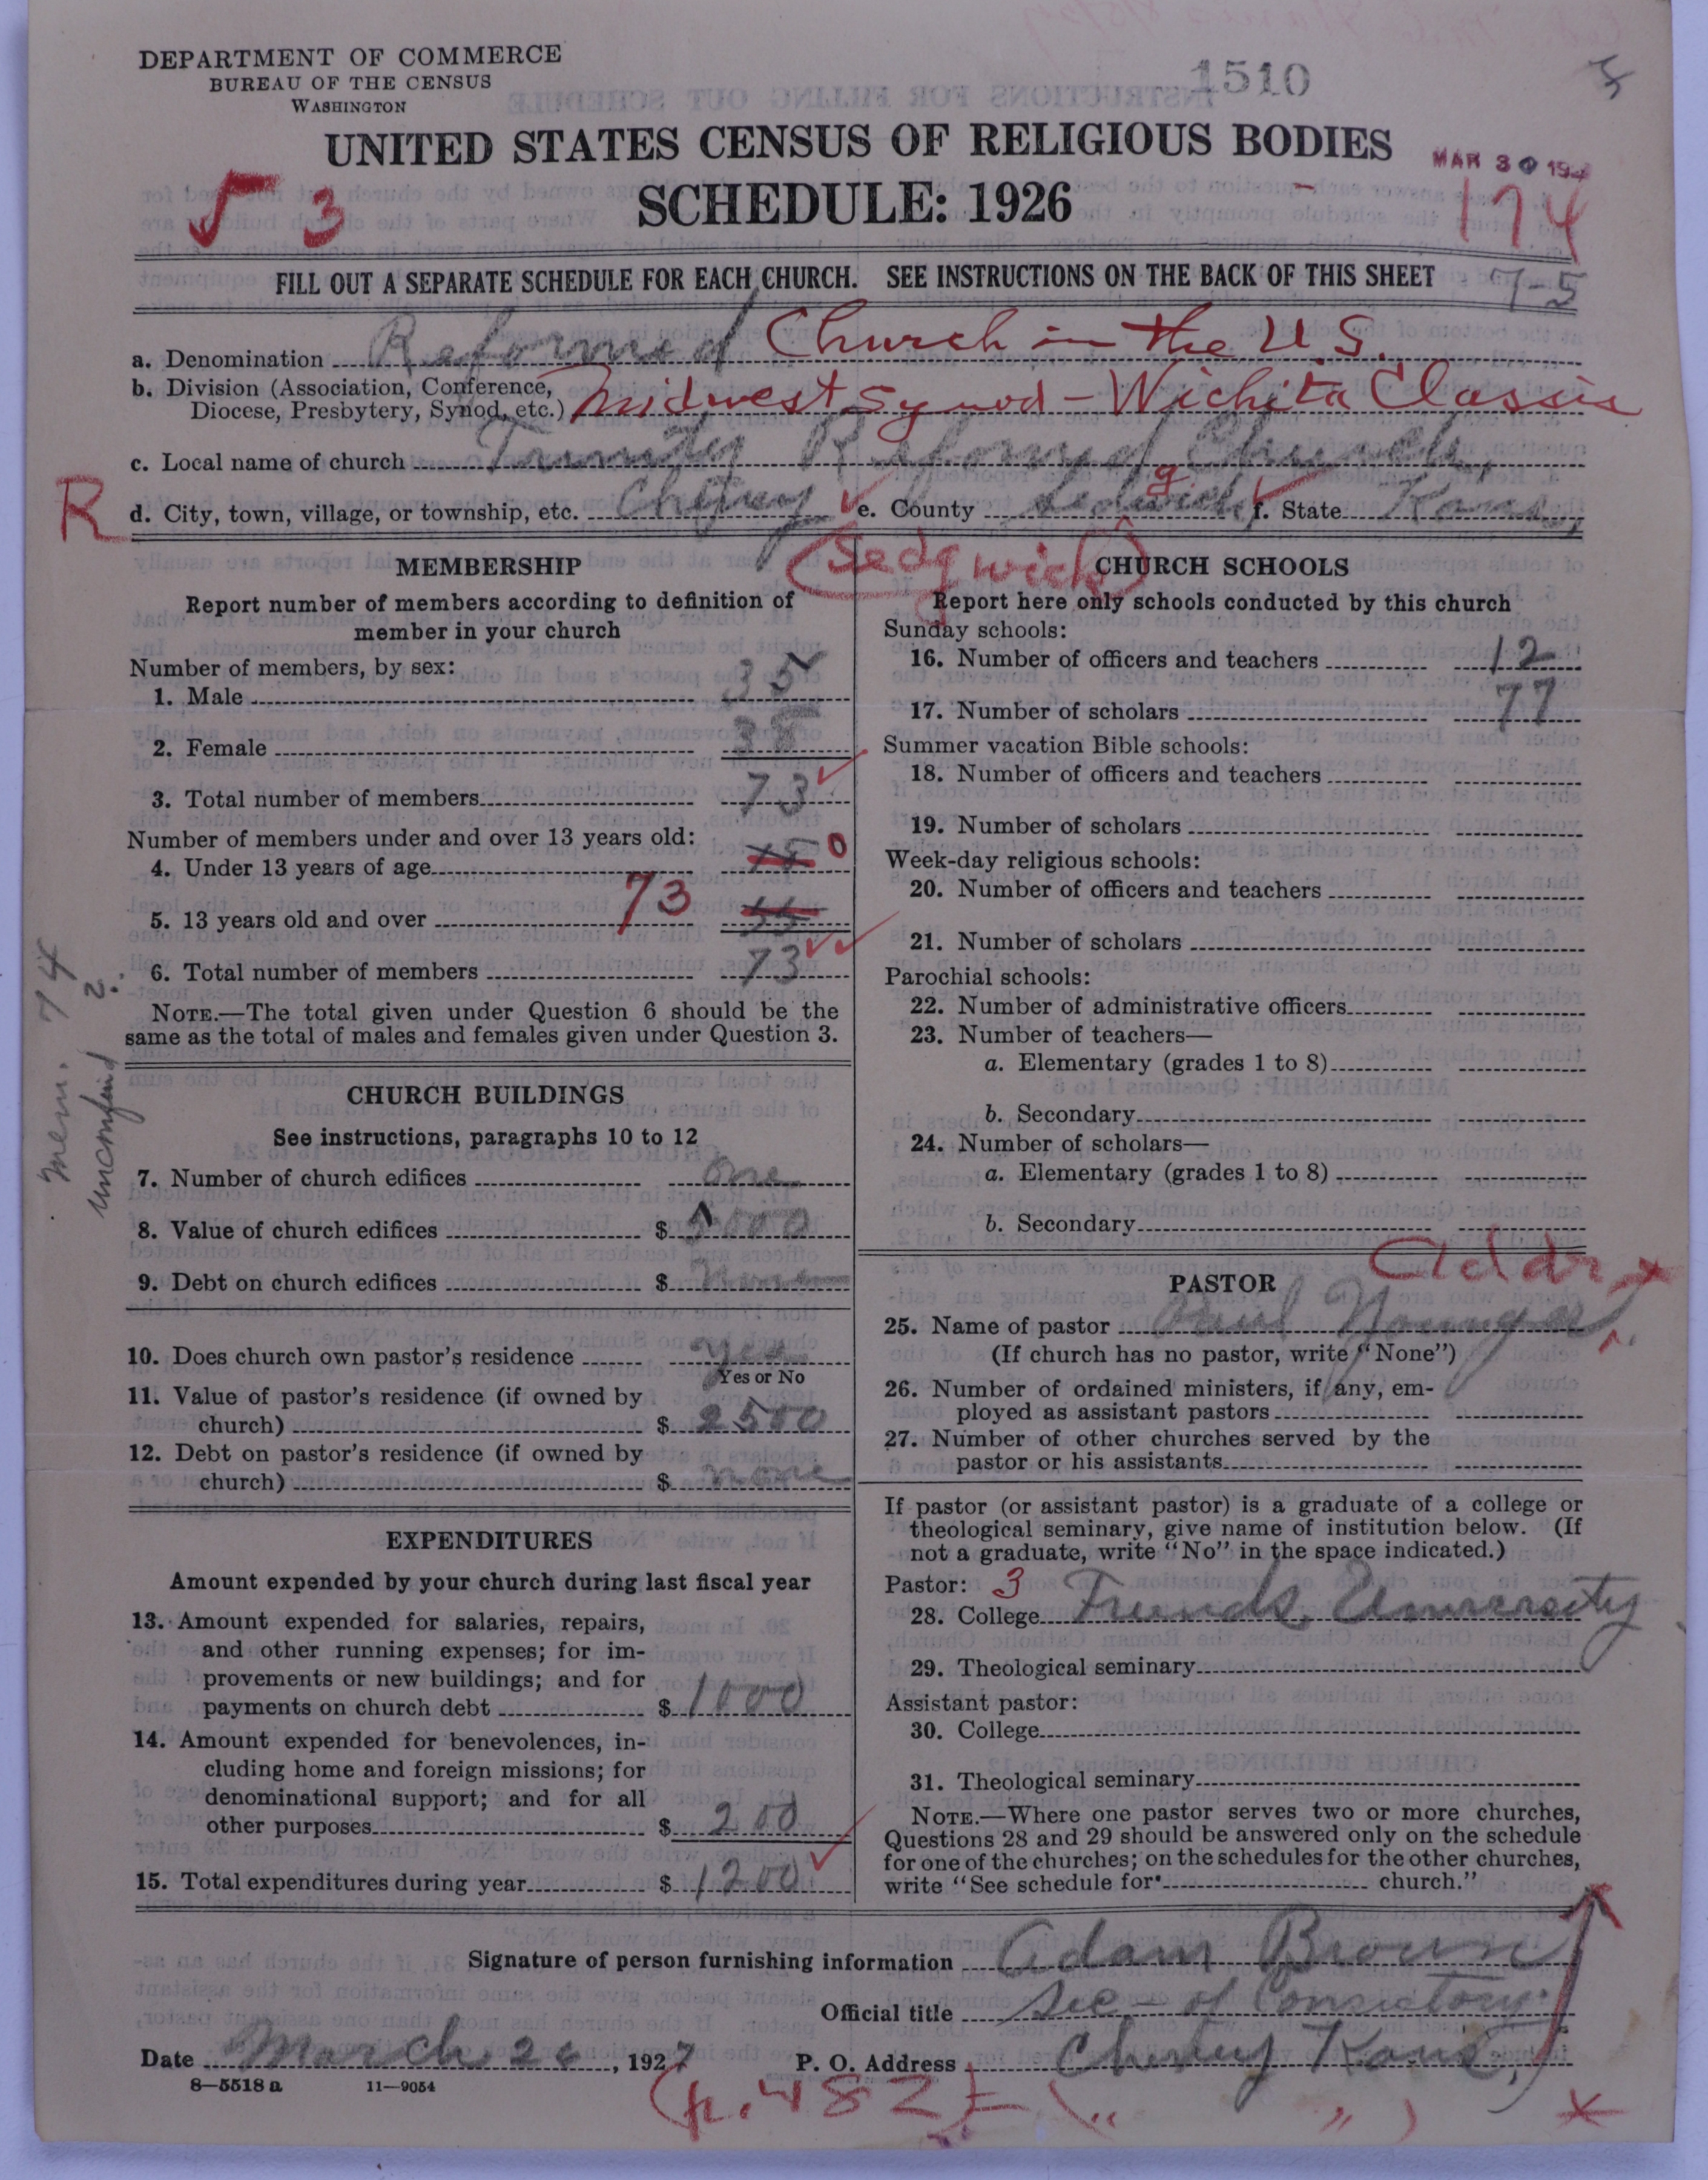 DEPARTMENT OF COMMERCE
BUREAU OF THE CENSUS
WASHINGTON
1510
UNITED STATES CENSUS OF RELIGIOUS BODIES
MAR 30 192
3
SCHEDULE: 1926
174
FILL OUT A SEPARATE SCHEDULE FOR EACH CHURCH. SEE INSTRUCTIONS ON THE BACK OF THIS SHEET
7-5
a. Denomination Reformed Church in the U.S.
b. Division (Association, Conference,
Diocese, Presbytery, Synod, etc.) Midwest Synod - Wichita Classis
c. Local name of church Trinity Reformed Church,
R
d. City, town, village, or township, etc. Cheney e. County Sedgwick f. State Kans.
(Sedgwick)
MEMBERSHIP
Report number of members according to definition of
member in your church
Number of members, by sex:
1. Male 35
2. Female 38
3. Total number of members 73
Number of members under and over 13 years old:
4. Under 13 years of age 0
5. 13 years old and over 73
6. Total number of members 73
NOTE.—The total given under Question 6 should be the
same as the total of males and females given under Question 3.
Mem. 74
2.
CHURCH BUILDINGS
See instructions, paragraphs 10 to 12
7. Number of church edifices one
8. Value of church edifices $ 5000
9. Debt on church edifices $ none
10. Does church own pastor's residence yes
Yes or No
11. Value of pastor's residence (if owned by
church) $ 2500
12. Debt on pastor's residence (if owned by
church) $ none
EXPENDITURES
Amount expended by your church during last fiscal year
13. Amount expended for salaries, repairs,
and other running expenses; for im-
provements or new buildings; and for
payments on church debt $ 1000
14. Amount expended for benevolences, in-
cluding home and foreign missions; for
denominational support; and for all
other purposes $ 200
15. Total expenditures during year $ 1200
CHURCH SCHOOLS
Report here only schools conducted by this church
Sunday schools:
16. Number of officers and teachers 12
17. Number of scholars 77
Summer vacation Bible schools:
18. Number of officers and teachers
19. Number of scholars
Week-day religious schools:
20. Number of officers and teachers
21. Number of scholars
Parochial schools:
22. Number of administrative officers
23. Number of teachers—
a. Elementary (grades 1 to 8)
b. Secondary
24. Number of scholars—
a. Elementary (grades 1 to 8)
b. Secondary
Addr x
PASTOR
25. Name of pastor Paul
(If church has no pastor, write "None")
26. Number of ordained ministers, if any, em-
ployed as assistant pastors
27. Number of other churches served by the
pastor or his assistants
If pastor (or assistant pastor) is a graduate of a college or
theological seminary, give name of institution below. (If
not a graduate, write "No" in the space indicated.)
Pastor: 3
28. College Friends University
29. Theological seminary
Assistant pastor:
30. College
31. Theological seminary
NOTE.—Where one pastor serves two or more churches,
Questions 28 and 29 should be answered only on the schedule
for one of the churches; on the schedules for the other churches,
write "See schedule for church."
Signature of person furnishing information Adam Brown
Official title Sec - of Consistory
Date March 26, 1927 P. O. Address Cheney Kans,
8—5518 a 11—9054
(p. 482) = (" ")